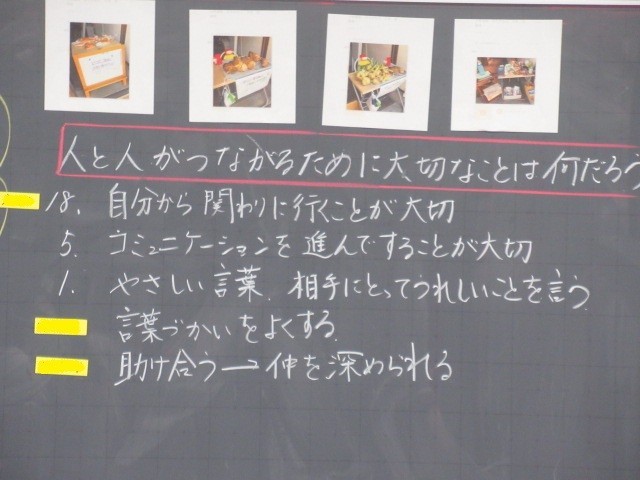 人と人がつながるために大切なことは何だろう
18. 自分から関わりに行くことが大切
5. コミュニケーションを進んですることが大切
1. やさしい言葉、相手にとってうれしいことを言う
言葉づかいをよくする
助け合う→仲を深められる